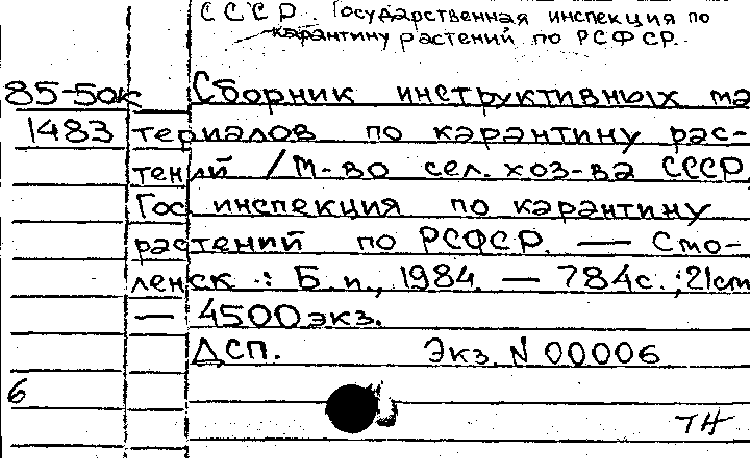 СССР. Государственная инспекция по
карантину растений по РСФСР.
85-50к Сборник инструктивных ма
1483 териалов по карантину рас-
тений / М-во сел. хоз-ва СССР,
Гос. инспекция по карантину
растений по РСФСР. — Смо-
ленск : Б.и., 1984. — 784с.; 21см
— 4500экз.
ДСП. Экз. N 00006
6
ТН